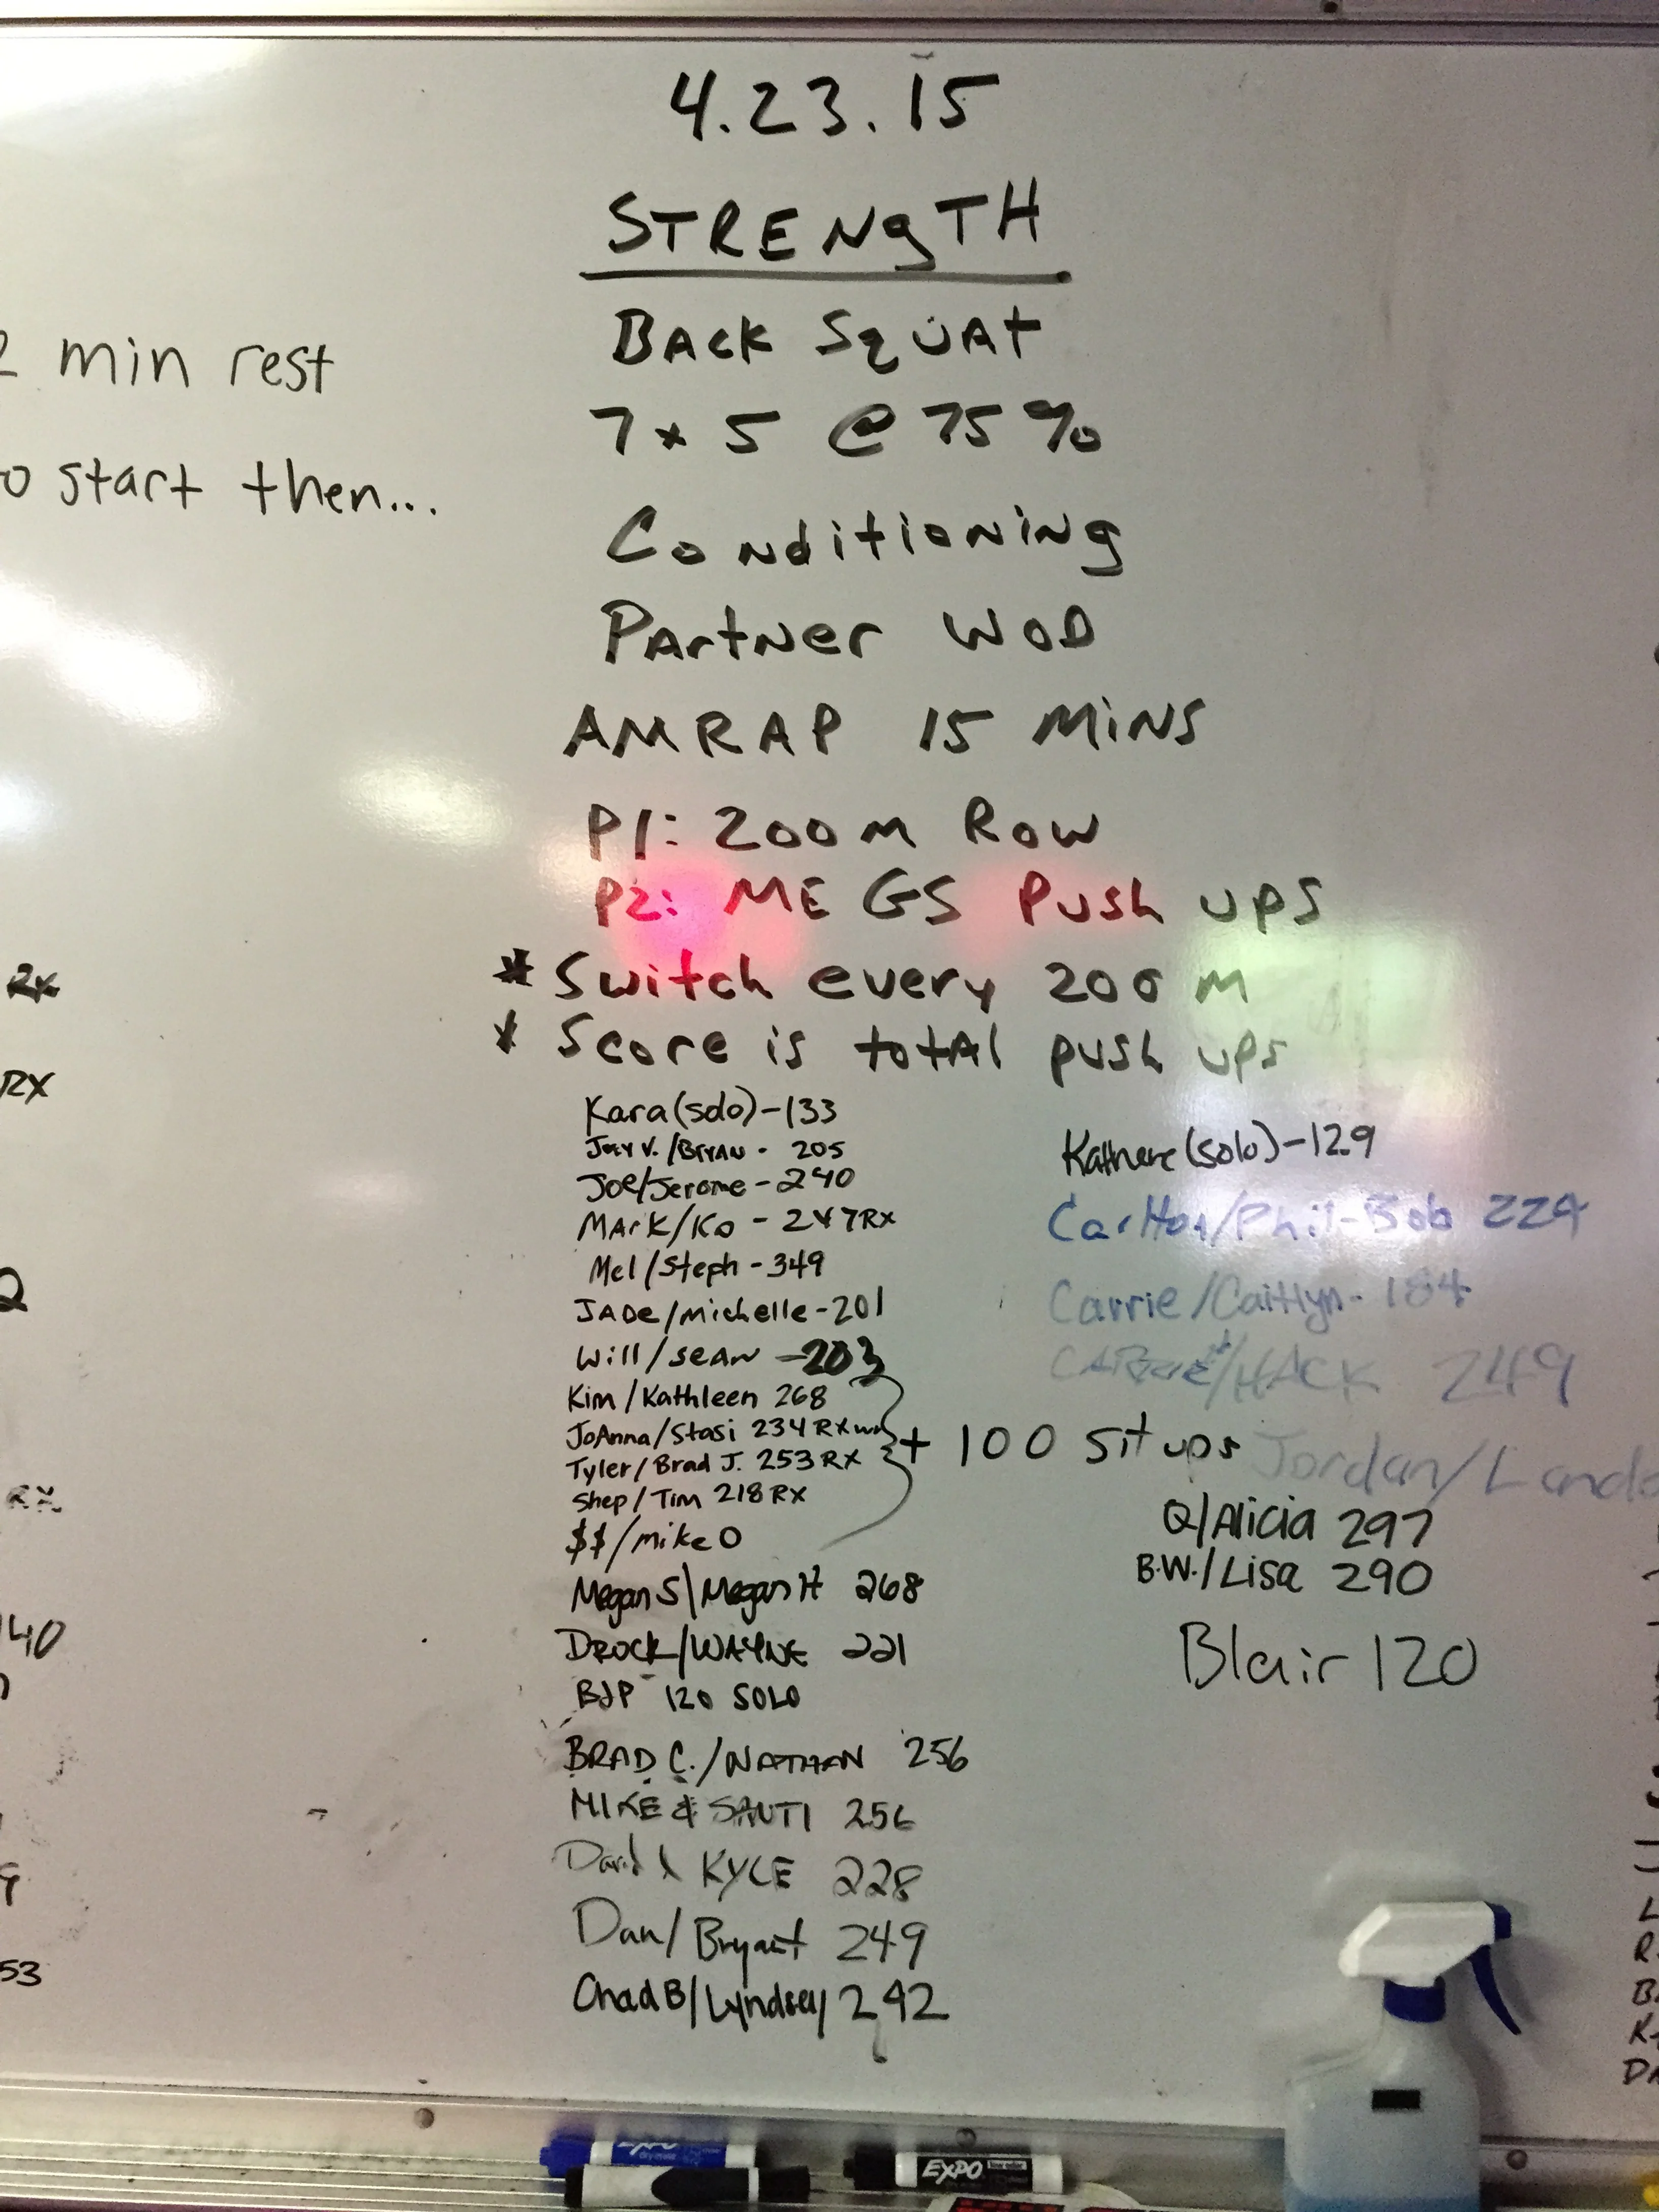 4.23.15
STRENgTH
BACK SQUAT
7 x 5 @ 75%
Conditioning
Partner WOD
AMRAP 15 MINS
P1: 200 m Row
P2: ME GS Push ups
* Switch every 200 M
* Score is total push ups
Kara (solo) - 133
Joey V. / BRYAN - 205
Joe/Jerome - 240
MArK/Ko - 247 RX
Mel / Steph - 349
JADe / michelle - 201
Will / SEAN - 203
Kim / Kathleen 268
JoAnna / Stasi 234 RX
Tyler / Brad J. 253 RX
Shep / Tim 218 RX
+ 100 sit ups
$$ / mike O
Megan S \ Megan H 268
DROCK/WAYNE 221
BJP 120 SOLO
BRAD C. / NATHAN 256
MIKE & SAUTI 256
David & KYLE 228
Dan / Bryant 249
Chad B / Lyndsey 242
(solo) - 129
Carlton/Phil-Bob 224
Carrie / Caitlyn - 184
/HACK 249
Jordan /
Q/Alicia 297
B.W. / Lisa 290
Blair 120
2 min rest
start then...
RX
RX
2
RX
40
9
53
EXPO
EXPO